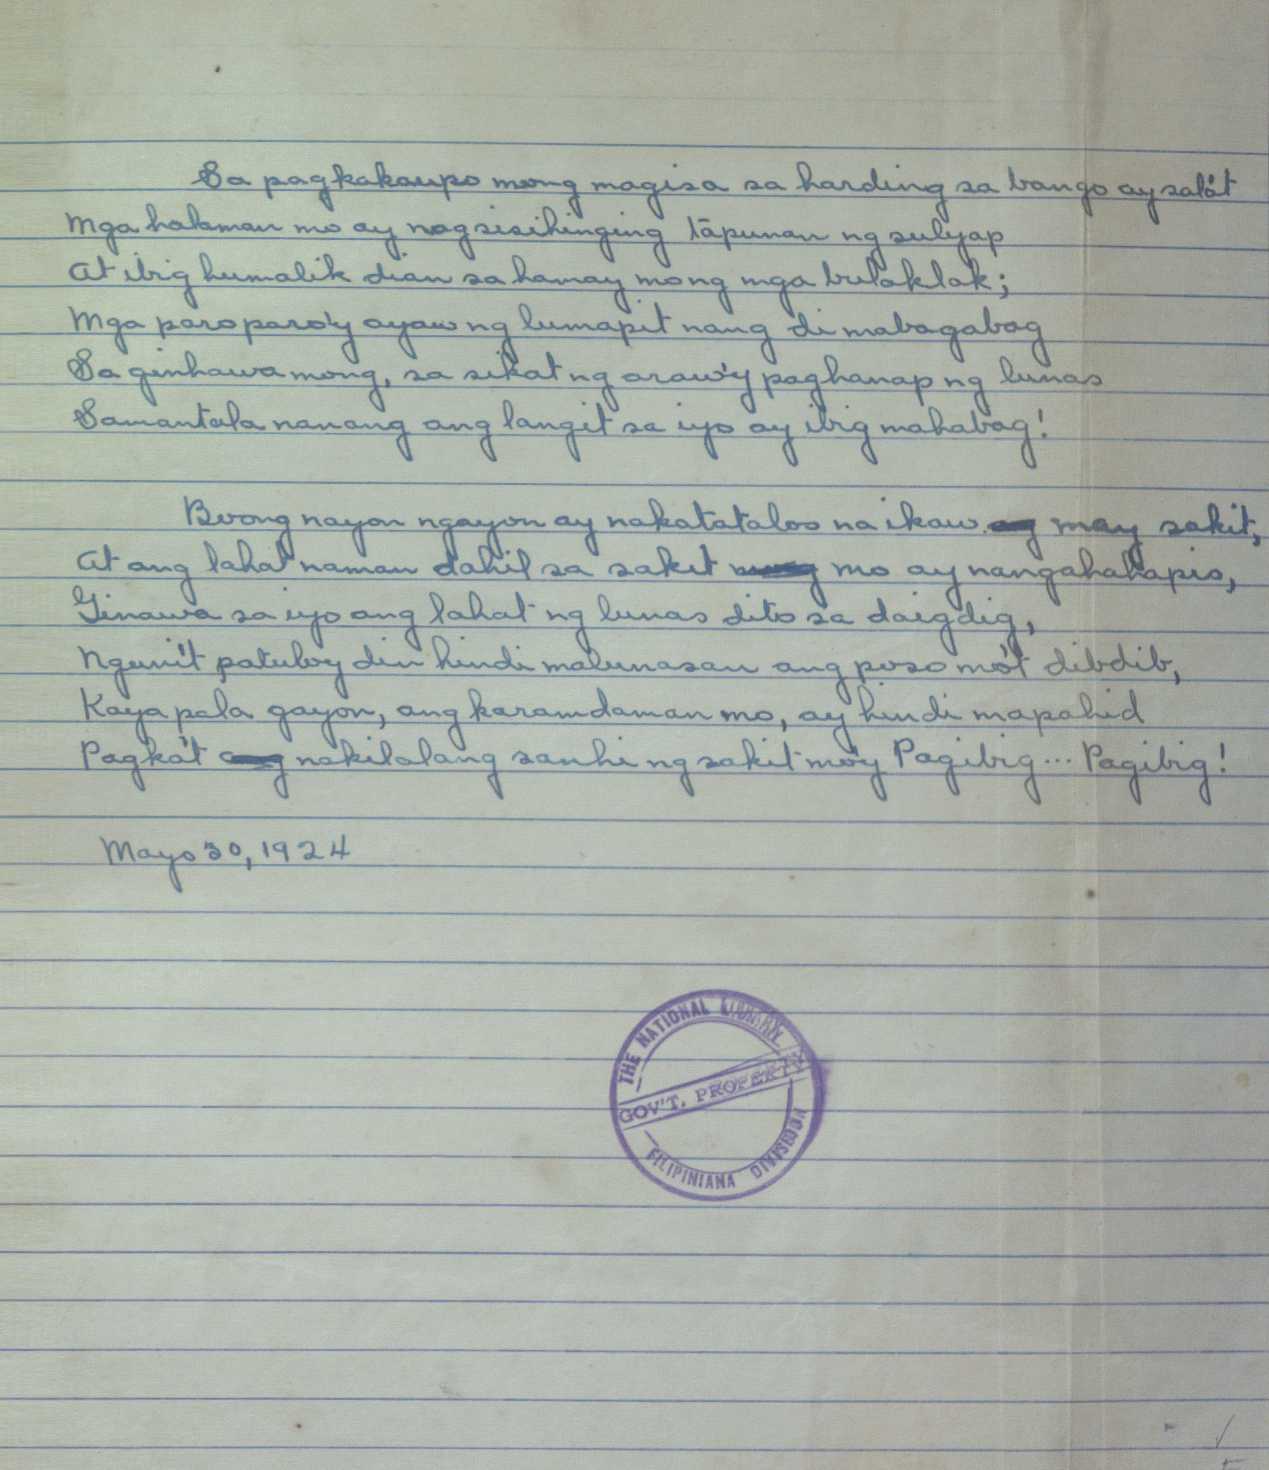 Sa pagkakaupo mong magisa sa harding sa bango ay salát
Mga halaman mo ay nagsisihinging tápunan ng sulyap
At ibig humalik dian sa kamay mong mga bulaklak;
Mga paroparo'y ayaw ng lumapit nang di mabagabag
Sa ginhawa mong, sa sikat ng araw'y paghanap ng lunas
Samantala nanang ang langit sa iyo ay ibig mahabag!
Buong nayon ngayon ay nakatatalos na ikaw may sakit,
At ang lahat naman dahil sa sakit mo ay nangahahapis,
Ginawa sa iyo ang lahat ng lunas dito sa daigdig,
Nguni't patuloy din hindi malunasan ang puso mo't dibdib,
Kaya pala gayon, ang karamdaman mo, ay hindi mapahid
Pagka't nakilalang sanhi ng sakit mo'y Pagibig... Pagibig!
Mayo 30, 1924
THE NATIONAL LIBRARY
GOV'T. PROPERTY
FILIPINIANA DIVISION